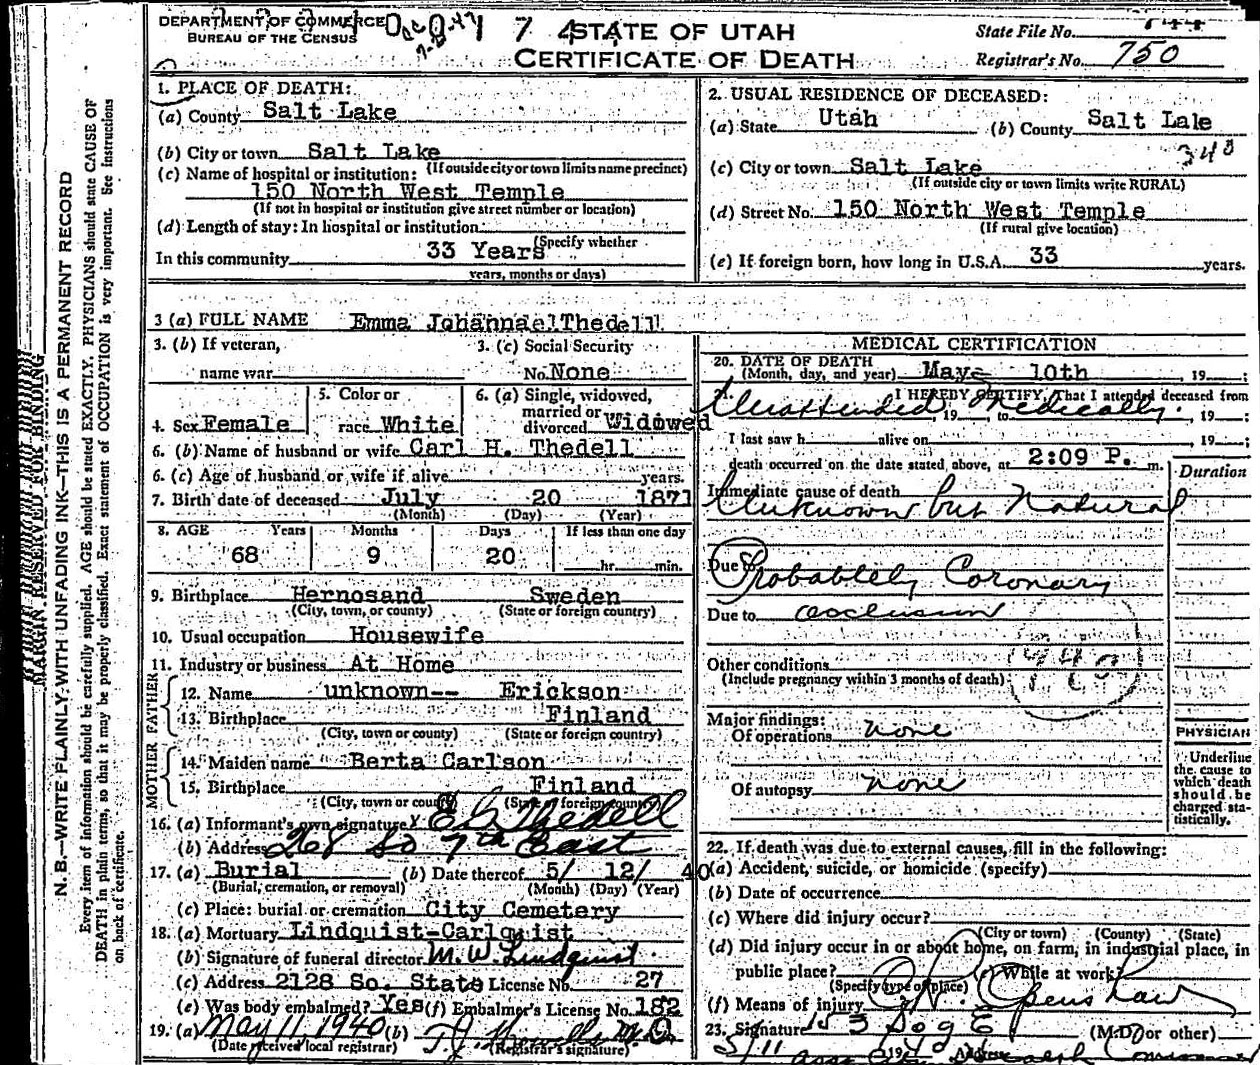 DEPARTMENT OF COMMERCE
BUREAU OF THE CENSUS
7 4
STATE OF UTAH
CERTIFICATE OF DEATH
State File No. 744
Registrar's No. 750
MARGIN RESERVED FOR BINDING
N. B.—WRITE PLAINLY, WITH UNFADING INK—THIS IS A PERMANENT RECORD
Every item of information should be carefully supplied. AGE should be stated EXACTLY. PHYSICIANS should state CAUSE OF
DEATH in plain terms, so that it may be properly classified. Exact statement of OCCUPATION is very important. See instructions
on back of certificate.
1. PLACE OF DEATH:
(a) County Salt Lake
(b) City or town Salt Lake
(If outside city or town limits name precinct)
(c) Name of hospital or institution:
150 North West Temple
(If not in hospital or institution give street number or location)
(d) Length of stay: In hospital or institution
(Specify whether
In this community 33 Years
years, months or days)
2. USUAL RESIDENCE OF DECEASED:
(a) State Utah (b) County Salt Lale
343
(c) City or town Salt Lake
(If outside city or town limits write RURAL)
(d) Street No. 150 North West Temple
(If rural give location)
(e) If foreign born, how long in U.S.A. 33 years.
3 (a) FULL NAME Emma Johanna Thedell
3. (b) If veteran,
name war
3. (c) Social Security
No. None
4. Sex Female
5. Color or
race White
6. (a) Single, widowed,
married or
divorced Widowed
6. (b) Name of husband or wife Carl H. Thedell
6. (c) Age of husband or wife if alive years.
7. Birth date of deceased July 20 1871
(Month) (Day) (Year)
8. AGE Years Months Days If less than one day
68 9 20 hr. min.
9. Birthplace Hernosand Sweden
(City, town, or county) (State or foreign country)
10. Usual occupation Housewife
11. Industry or business At Home
FATHER
12. Name unknown-- Erickson
13. Birthplace Finland
(City, town or county) (State or foreign country)
MOTHER
14. Maiden name Berta Carlson
15. Birthplace Finland
(City, town or county) (State or foreign country)
16. (a) Informant's own signature x E G Thedell
(b) Address 268 So 7th East
17. (a) Burial (b) Date thereof 5/ 12/ 40
(Burial, cremation, or removal) (Month) (Day) (Year)
(c) Place: burial or cremation City Cemetery
18. (a) Mortuary Lindquist-Carlquist
(b) Signature of funeral director M. W. Lindquist
(c) Address 2128 So. State License No. 27
(e) Was body embalmed? Yes (f) Embalmer's License No. 182
19. (a) May 11 1940 (b) T. J. Howells M.D.
(Date received local registrar) (Registrar's signature)
MEDICAL CERTIFICATION
20. DATE OF DEATH
(Month, day, and year) May 10th, 19
21. I HEREBY CERTIFY, That I attended deceased from
Unattended, 19 to Medically. 19
I last saw h alive on , 19
death occurred on the date stated above, at 2:09 P. m.
Duration
Immediate cause of death
Unknown but Natural
Due to Probablely Coronary
Due to occlusion
Other conditions
(Include pregnancy within 3 months of death)
940
Major findings:
Of operations none
Of autopsy none
PHYSICIAN
Underline
the cause to
which death
should be
charged sta-
tistically.
22. If death was due to external causes, fill in the following:
(a) Accident, suicide, or homicide (specify)
(b) Date of occurrence
(c) Where did injury occur?
(City or town) (County) (State)
(d) Did injury occur in or about home, on farm, in industrial place, in
public place? (e) While at work?
(Specify type of place)
(f) Means of injury
23. Signature (M.D. or other)
5/11